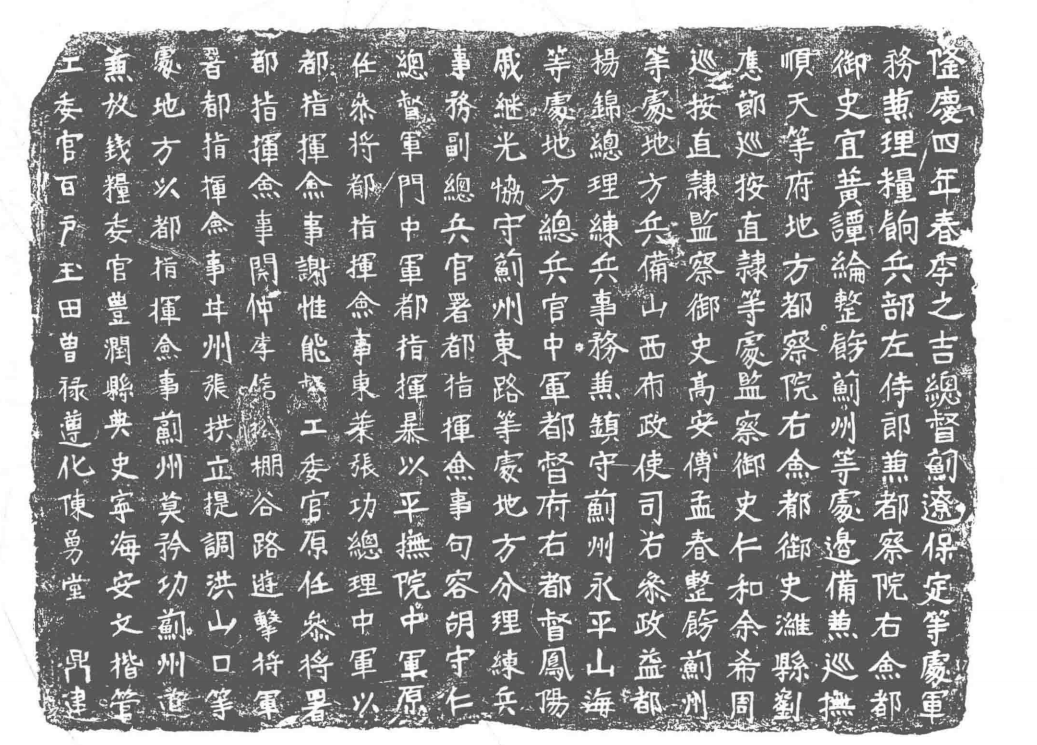 隆慶四年春季之吉總督薊遼保定等處軍
務兼理糧餉兵部左侍郎兼都察院右僉都
御史宜黃譚綸整飭薊州等處邊備兼巡撫
順天等府地方都察院右僉都御史濰縣劉
應節巡按直隸等處監察御史仁和余希周
巡按直隸監察御史高安傅孟春整飭薊州
等處地方兵備山西布政使司右叅政益都
楊錦總理練兵事務兼鎮守薊州永平山海
等處地方總兵官中軍都督府右都督鳳陽
戚繼光協守薊州東路等處地方分理練兵
事務副總兵官署都指揮僉事句容胡守仁
總督軍門中軍都指揮暴以平撫院中軍原
任叅將都指揮僉事東萊張功總理中軍以
都指揮僉事謝惟能督工委官原任叅將署
都指揮僉事開仲李信松棚谷路遊擊將軍
署都指揮僉事幷州張拱立提調洪山口等
處地方以都指揮僉事薊州莫矜功薊州道
兼放錢糧委官豐潤縣典史寧海安文楷管
工委官百戶玉田曾祿遵化陳勇堂 鼎建